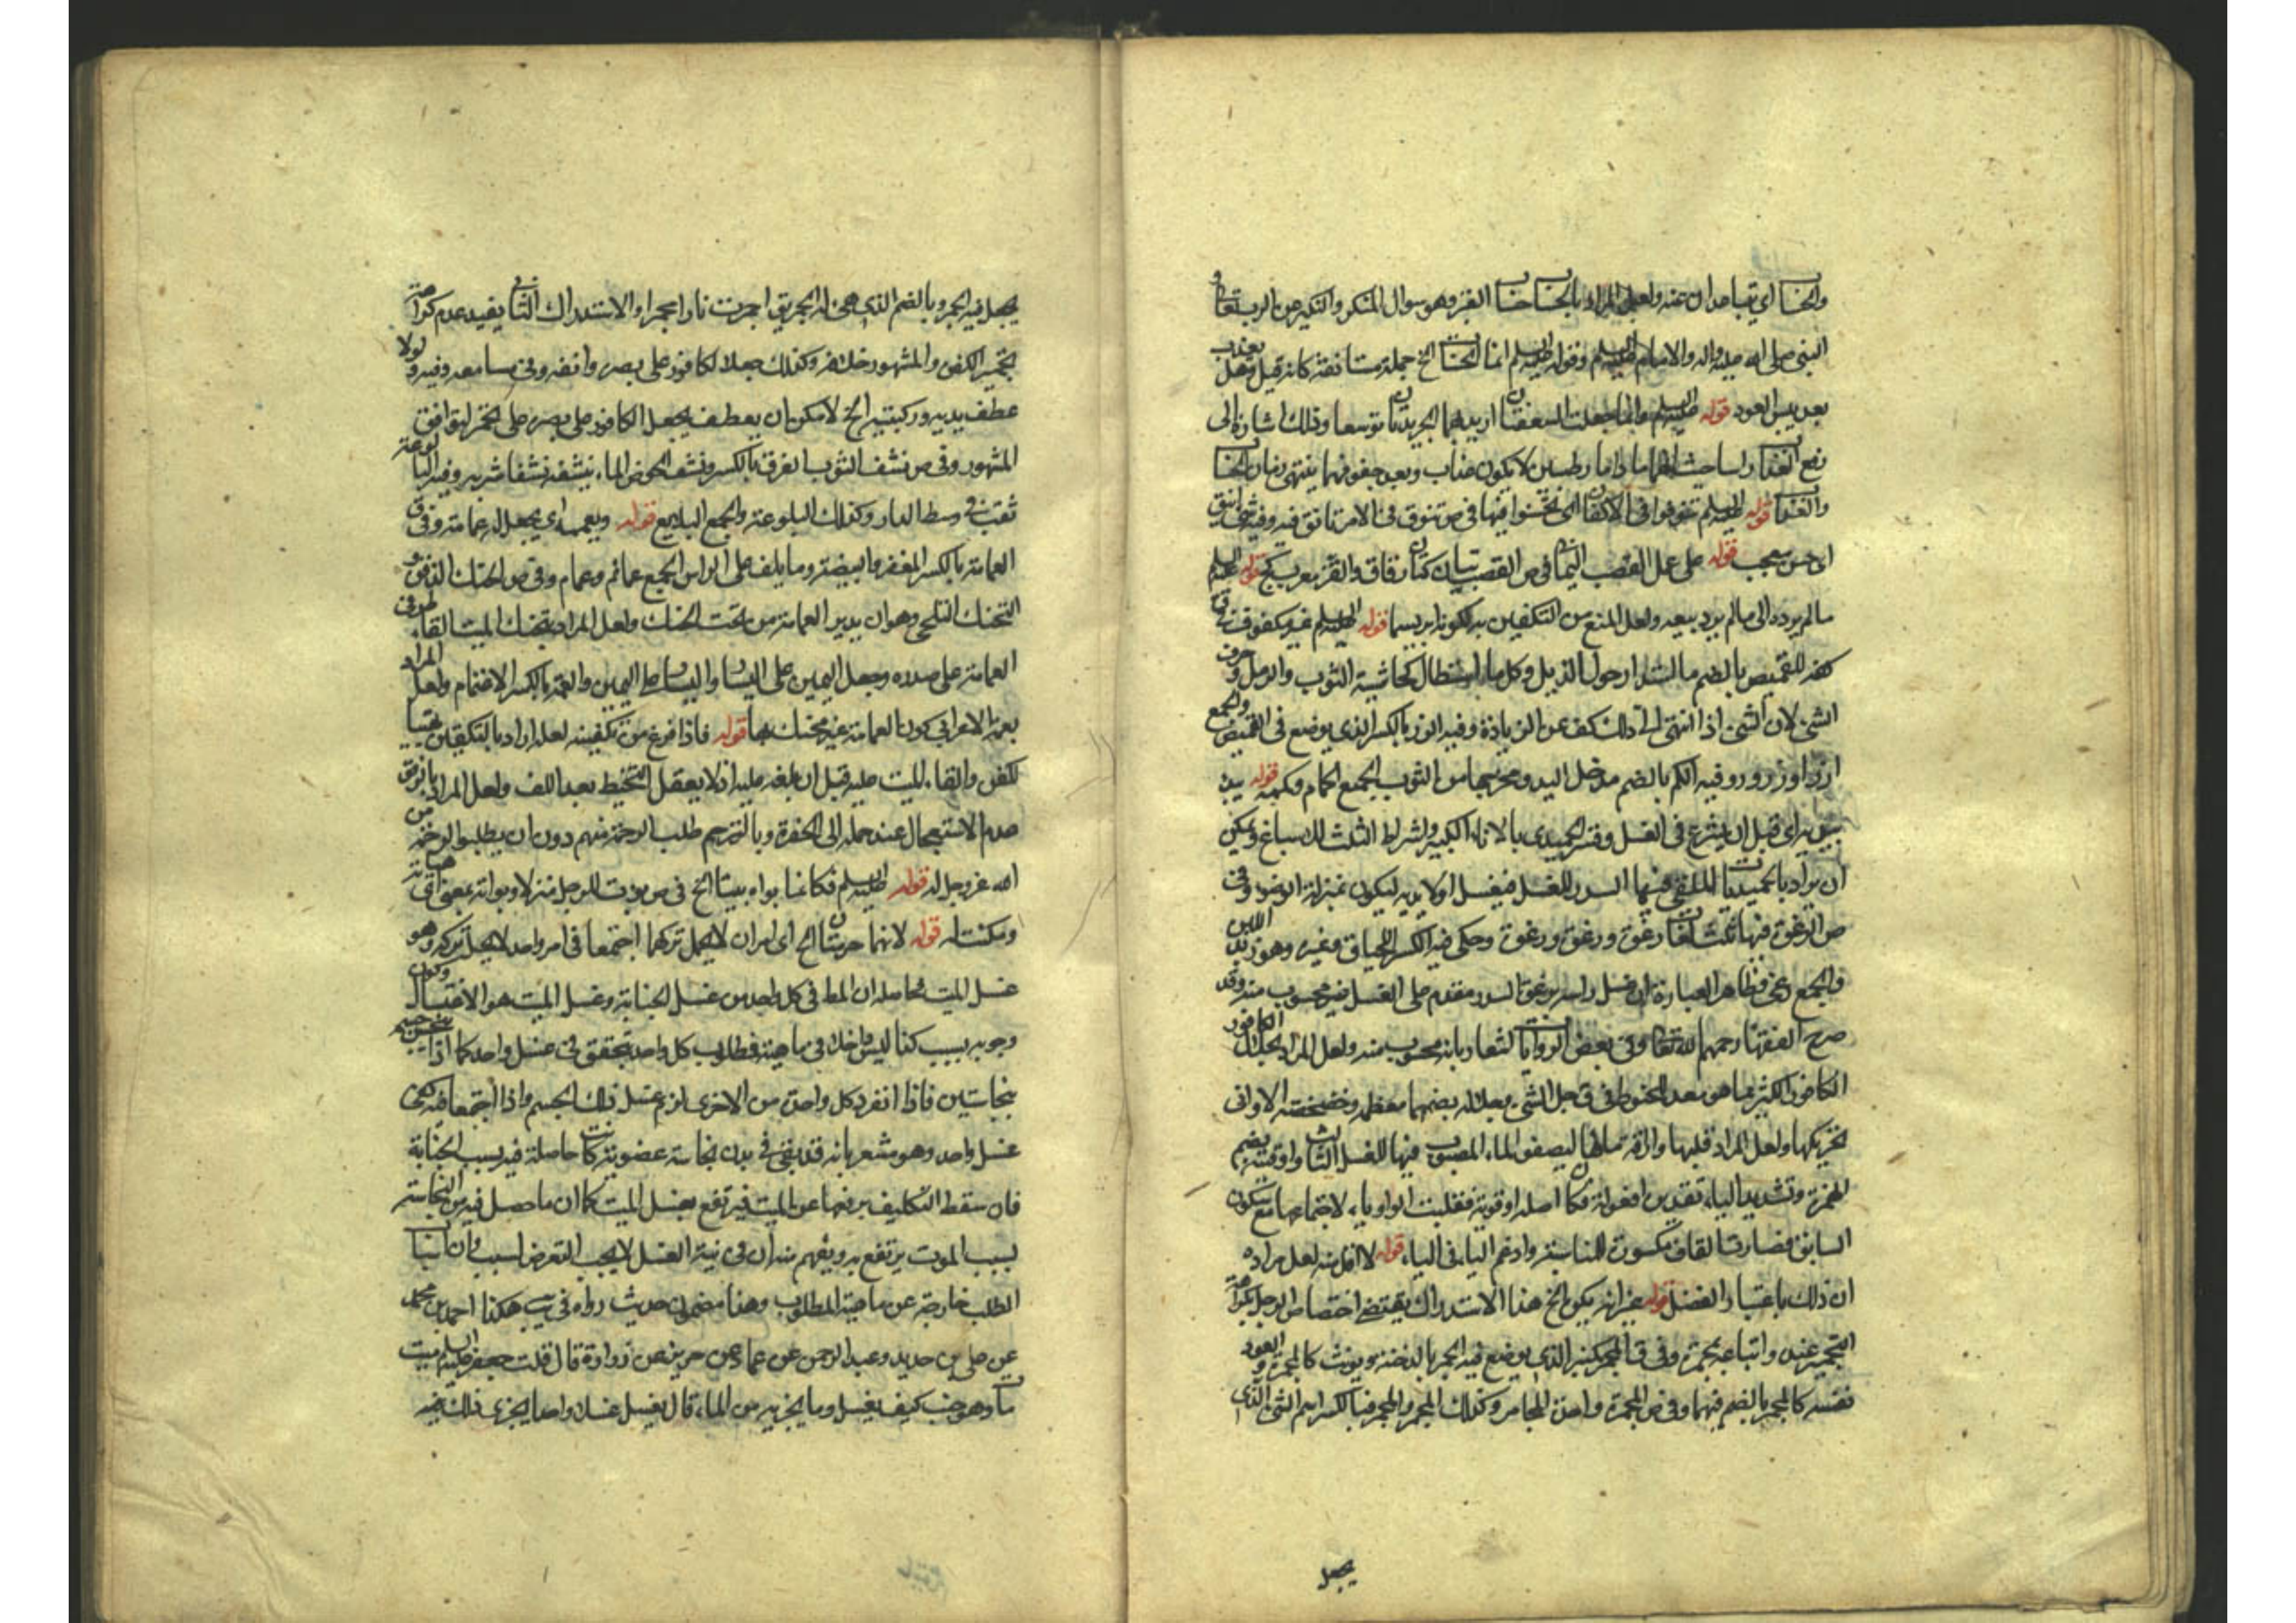 والحسا اي تباعدان عنه ولعل المراد بالحسا حسا القبر وهو سوال المنكر والنكير من الرب تعالى و
النبي صلى الله عليه واله والامام عليه السلم وقوله عليه السلم انما الحسا الخ جملة مستانفة كانه قيل وهل يعذب
بعد يبس العود قوله عليه السلم وانما جعلت السعفتان اريد بهما الجريدتان توسعا وذلك اشارة الى
رفع العذاب والحساب حيث انهما ما داما رطبين لا يكون عذاب وبعد جفوفهما ينتهي زمان الحساب
والعذاب قوله عليه السلم تنوقوا في الاكفان اي تحسنوا فيها في ص تنوق في الامر تانق فيه وفيه شئ انيق
اي حسن معجب قوله على عمل القصب اليماني في ص القصب ثياب كتان رقاق والقز معرب كج قوله عليه السلم
ما لم يرده الى ما لم يرد بيعه ولعل المنع من التكفين به لكونه ابريسما قوله عليه السلم غير مكفوف في ق
كفة القميص بالضم ما استدار حول الذيل وكل ما استطال كحاشية الثوب والرمل وحرف
الشئ لان الشئ اذا انتهى الى ذلك كف عن الزيادة وفيه الزر بالكسر الذي يوضع في القميص والجمع
ازرار وزرور وفيه الكم بالضم مدخل اليد ومخرجها من الثوب الجمع اكمام وكممة قوله يبدء
بيديه اي قبل ان يشرع في الغسل وفسر الحميدي بالاناء الكبير واشراط الثلث للاسباغ ويمكن
ان يراد بالحميديات الملقى فيها السدر للغسل فيغسل اولا يديه ليكون بمنزلة الوضوء وفي
ص الرغوة فيها ثلث لغات رغوة ورغوة ورغوة وحكى فيه الكسر اللحياني وغيره وهو زبد اللبن
والجمع رغى فظاهر العبارة ان غسل راسه برغوة السدر مقدم على الغسل غير محسوب منه وقد
صرح الفقهاء رحمهم الله تعالى وفي بعض الروايات اشعار بانه محسوب منه ولعل المراد بجلال الكافور
الكافور اكثره مما هو معد للحنوط في ق جل الشئ وجلاله بضمهما معظمه وخضخضة الاواني
تحريكها ولعل المراد قلبها واراقة تمامها ليصفو الماء المصبوب فيها للغسل الثالث واوقية بضم
الهمزة وتشديد الياء تقدير افعولة فكان اصله اوقوية فقلبت الواو ياء لاجتماعها مع سكون
السابق فصارت القاف مكسورة للمناسبة وادغم الياء في الياء قوله لا اقل منه لعل مراده
ان ذلك باعتبار الفضل قوله غير انه يكره الخ هذا الاستدراك يقتضي اختصاص الرجل بكراهة
التجمير عنده واتباعه بمجمرة وفي ق المجمر كمنبر الذي يوضع فيه الجمر بالدخنة ويونث كالمجمرة والعود
نفسه كالمجمر بالضم فيهما وفي ص المجمرة واحدة المجامر وكذلك المجمر والمجمر فبالكسر اسم الشئ الذي
يجعل
يجعل فيه الجمر وبالضم الذي هيئ له الجمر يق اجمرت نارا مجمرا والاستدراك الثاني يفيد عدم كراهة
تجمير الكفن والمشهور خلافه وكذلك جعل الكافور على بصره وانفه وفي مسامعه وفيه ولولا
عطف يديه وركبتيه الخ لامكن ان يعطف يجعل الكافور على بصره على تخمر ليوافق
المشهور وفي ص نشف الثوب العرق بالكسر ونشف الحوض الماء ينشفه نشفا شربه وفيه البالوعة
ثقب في وسط الدار وكذلك البلوعة والجمع البلاليع قوله ويعممه اي يجعل له عمامة وفي ق
العمامة بالكسر المغفر والبيضة وما يلف على الراس الجمع عمائم وعمام وفي ص الحنك الذقن و
التحنك التلحي وهو ان يدير العمامة من تحت الحنك ولعل المراد بتحنك الميت القاء طرفي
العمامة على صدره وجعل اليمين على اليسار واليسار على اليمين والعمة بالكسر الاعتمام ولعل المراد
بعمة الاعرابي كون العمامة غير محنك بها قوله فاذا فرغ من تكفينه لعله اراد بالتكفين تهيئة
للكفن والقاء الميت عليه قبل ان يلفه عليه اذ لا يعقل التحنيط بعد اللف ولعل المراد بالرفق
عدم الاستعجال عند حمله الى الحفرة وبالترحم طلب الرحمة منهم دون ان يطلبوا الرحمة من
الله عز وجل له قوله عليه السلم فكانما بواه بيتا الخ في ص بوات للرجل منزلا وبواته بمعنى اي هياته
ومكنت له قوله لانهما حرمتان الخ اي امران لا يحل تركهما اجتمعا في امر واحد لا يحل تركه وهو
غسل الميت فحاصله ان المط في كل واحد من غسل الجنابة وغسل الميت هو الاغتسال وكون
وجوبه بسبب كذا ليس داخلا في ماهيته فطلوب كل واحد يتحقق في غسل واحد كما اذا تنجس جسم
بنجاستين فاذا انفرد كل واحدة من الاخرى لزم غسل ذلك الجسم واذا اجتمعا فيه كفى
غسل واحد وهو مشعر بانه قد بقي في بدنه نجاسة عضوية كانت حاصلة فيه بسبب الجنابة
فان سقط التكليف برفعها عن الميت فيرتفع بغسل الميت كما ان ما حصل فيه من النجاسة
بسبب الموت يرتفع به ويفهم منه ان في نية الغسل لا يجب التعرض لسببه وان اسباب
الطلب خارجة عن ماهية المطلوب وهذا مضمون حديث رواه في يب هكذا احمد بن محمد
عن علي بن حديد وعبد الرحمن عن حماد عن حريز عن زرارة قال قلت لابي جعفر عليه السلم ميت
مات وهو جنب كيف يغسل وما يجزيه من الماء قال يغسل غسلا واحدا يجزي ذلك عنه